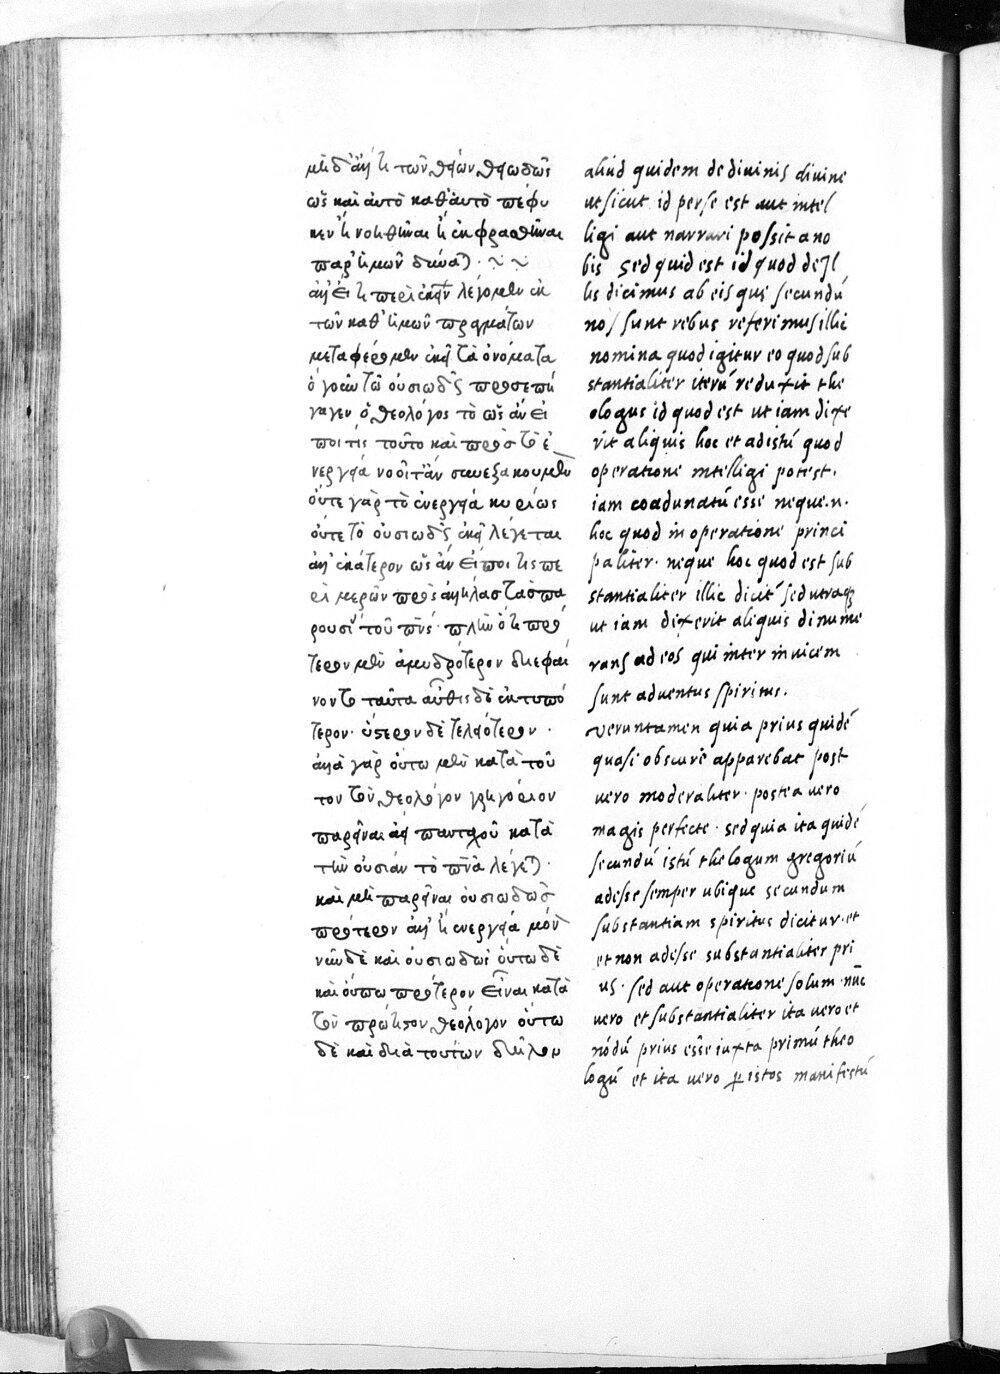 μὴ δ' ἄν τι τῶν θείων θειωδῶς
ὡς καὶ αὐτὸ καθ' αὑτὸ πέφυ
κεν ἢ νοηθῆναι ἢ ἐκφρασθῆναι
παρ' ἡμῶν δύναται·
ἀλλ' εἴ τι περὶ ἐκείνων λέγομεν ἐκ
τῶν καθ' ἡμῶν πραγμάτων
μεταφέρομεν ἐκεῖ τὰ ὀνόματα
ὃ γοῦν τῶ οὐσιωδῶς προσεπή
γαγεν ὁ θεολόγος τὸ ὡς ἂν εἴ
ποι τις τοῦτο καὶ πρὸς τὸ ἐ
νεργεία νοοῖτ' ἂν συνεξακουμεν
οὔτε γὰρ τὸ ἐνεργεία κυρίως
οὔτε τὸ οὐσιωδῶς ἐκεῖ λέγεται
ἀλλ' ἑκάτερον ὡς ἂν εἴποι τις πε
ρὶ μερῶν πρὸς ἀλλήλας τὰς πα
ρουσί τοῦ πνς· πλὴν ὅτι πρό
τερον μὲν ἀμυδρότερον διεφαί
νοντο ταῦτα αὖθις δὲ ἐκτυπό
τερον· ὕστερον δὲ τελεότερον·
ἀλλὰ γὰρ οὕτω μὲν κατὰ τοῦ
τον τὸν θεολόγον γρηγόριον
παρεῖναι ἀεὶ πανταχοῦ κατὰ
τὴν οὐσίαν τὸ πνα λέγεται·
καὶ μὴ παρεῖναι οὐσιωδῶς
πρότερον ἀλλ' ἢ ἐνεργεία μόν
νῦν δὲ καὶ οὐσιωδῶς οὕτω δὲ
καὶ οὔπω πρότερον εἶναι κατὰ
τὸν πρώτιστον θεολόγον οὕτω
δὲ καὶ διὰ τούτων δῆλον
aliud quidem de diuinis diuine
ut sicut id per se est aut intel
ligi aut narrari possit a no
bis sed quid est id quod de il
lis dicimus ab eis que secundũ
nos sunt rebus referimus illic
nomina quod igitur eo quod sub
stantialiter iterũ reduxit the
ologus id quod est ut iam dixe
rit aliquis hoc et ad istũ quod
operatione intelligi potest.
iam coadunatũ esse neque .n.
hoc quod in operatione princi
paliter. neque hoc quod est sub
stantialiter illic dicit sed utraqꝫ
ut iam dixerit aliquis dinume
rans ad eos qui inter inuicem
sunt aduentus spiritus.
Veruntamen quia prius quidẽ
quasi obscure apparebat post
uero moderaliter. postea uero
magis perfecte. sed quia ita quidẽ
secundũ istũ thelogum gregoriũ
adesse semper ubique secundum
substantiam spiritus dicitur. et
et non adesse substantialiter pri
us. sed aut operatione solum. nũc
uero et substantialiter ita uero et
nõdũ prius esse iuxta primũ theo
logũ et ita uero ꝑ istos manifestũ